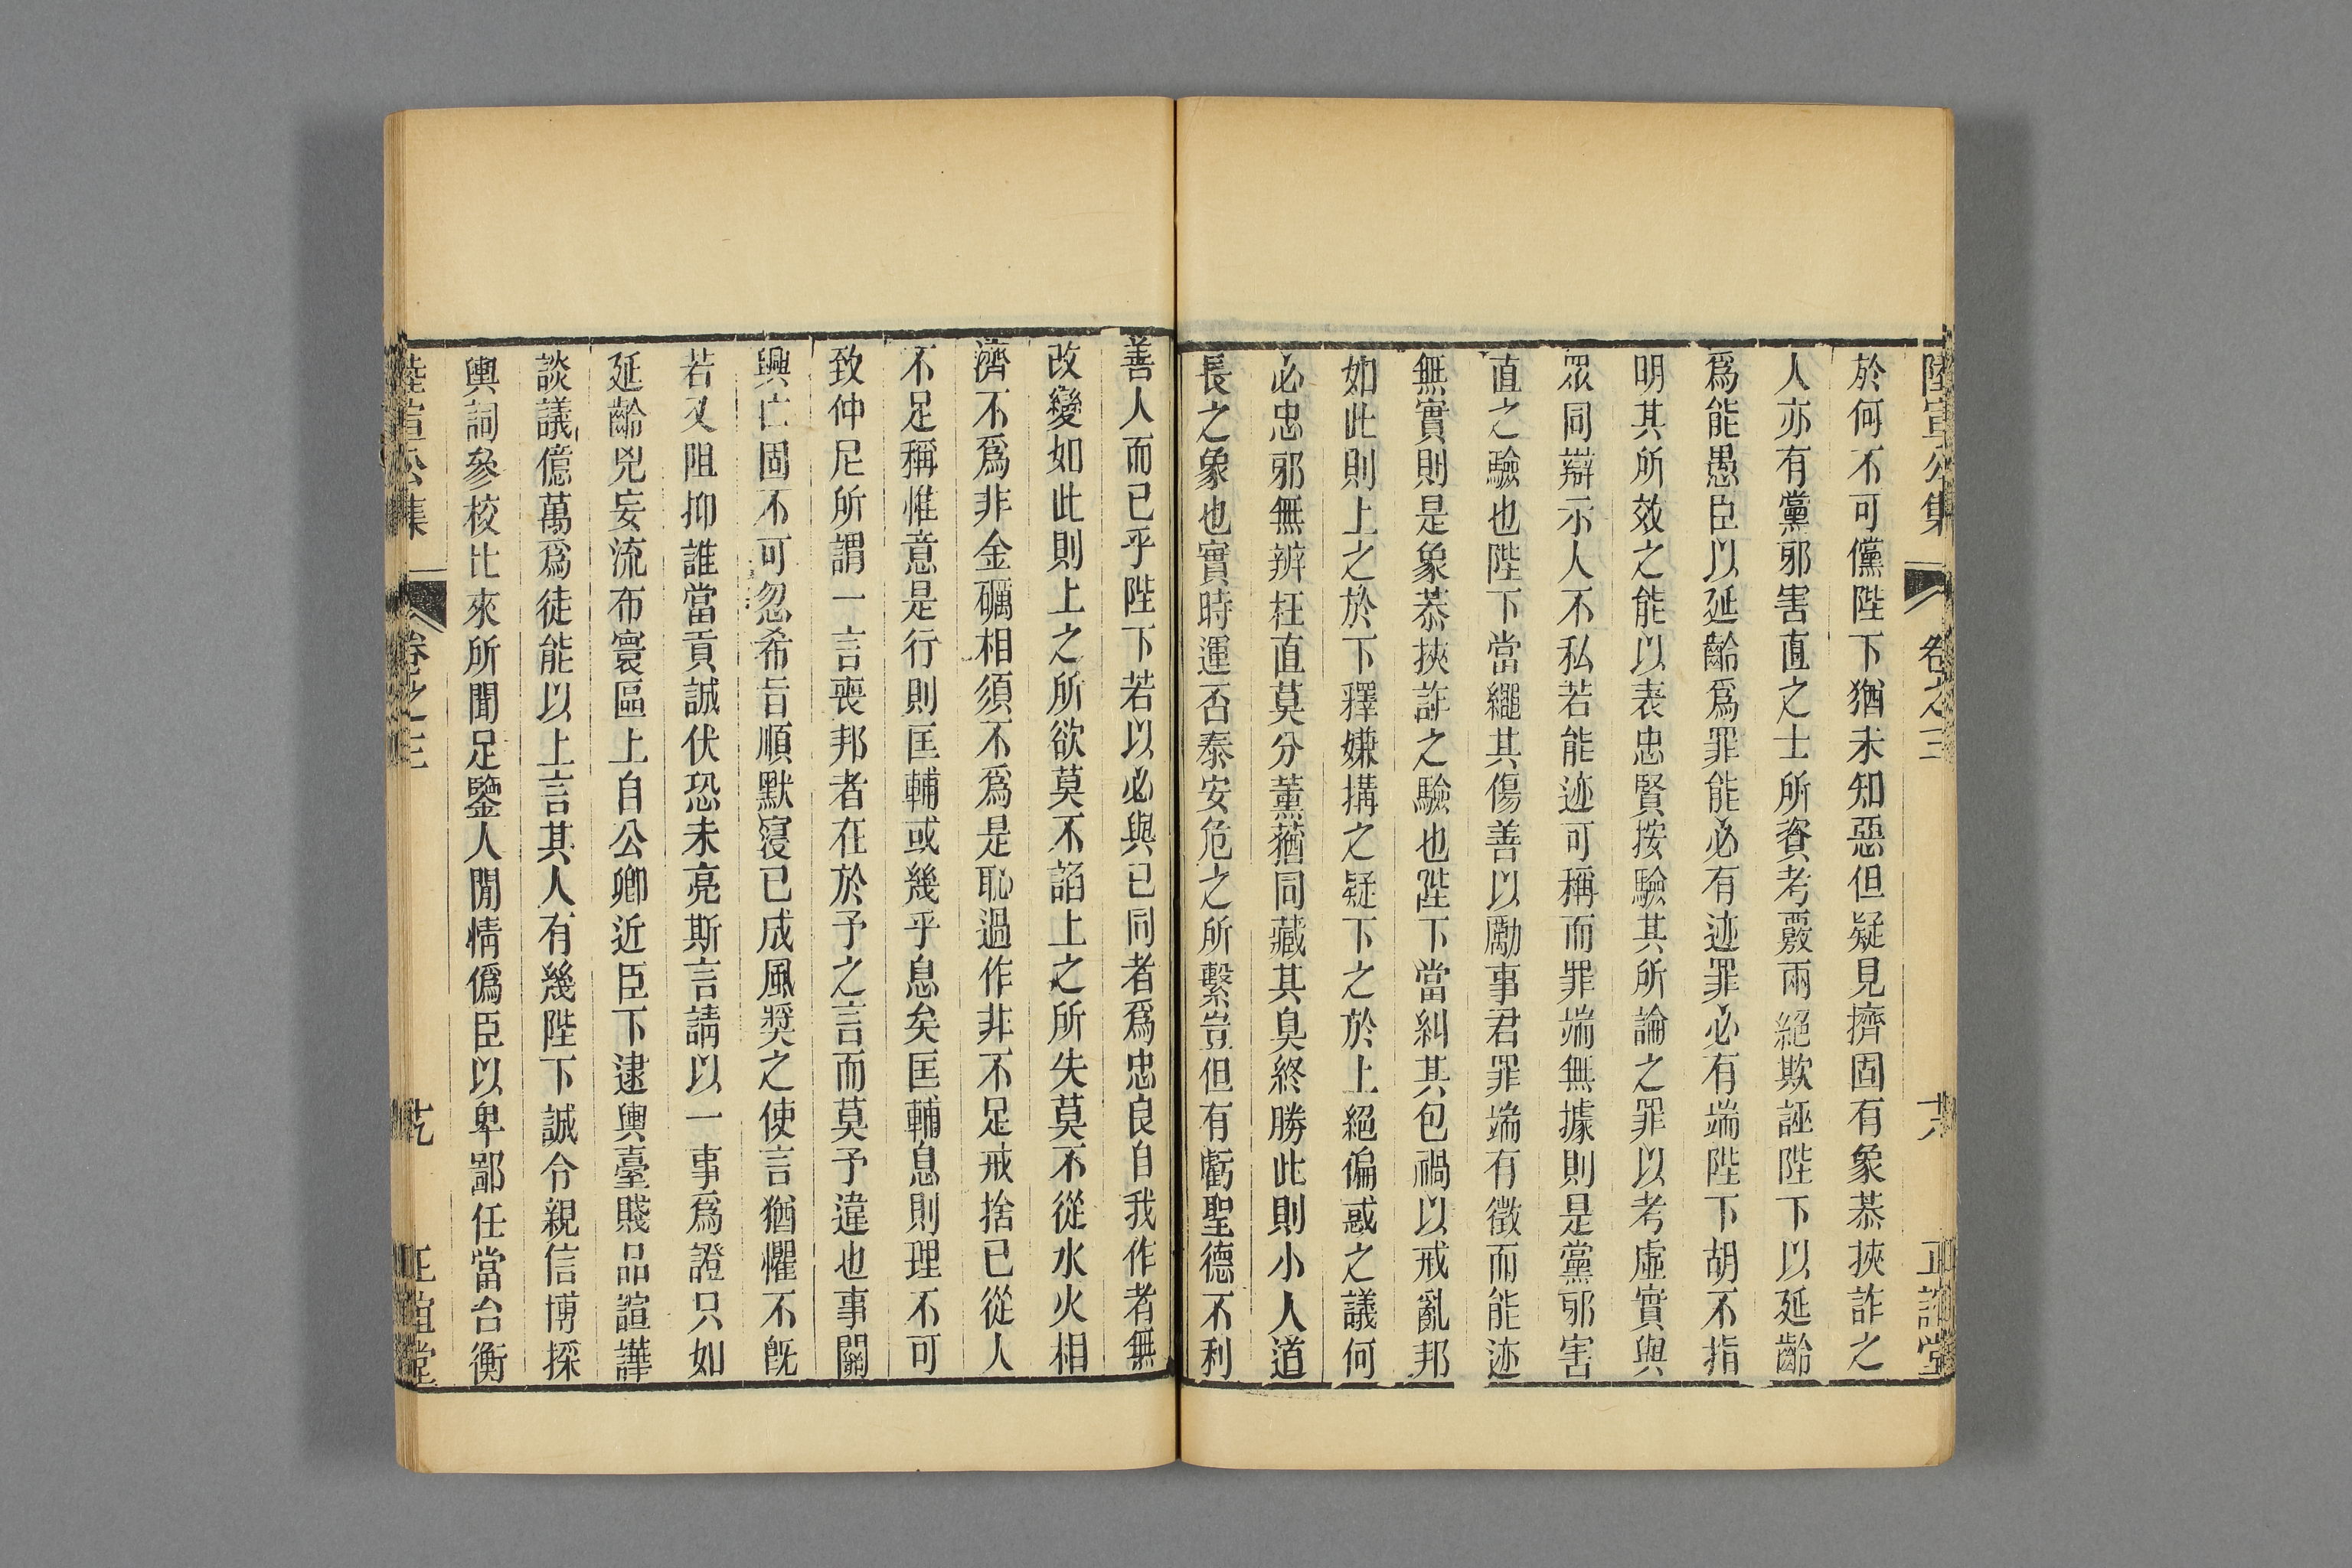 陸宣公集 卷之三 十八 正誼堂
於何不可儻陛下猶未知惡但疑見擠固有象恭挾詐之
人亦有黨邪害直之士所資考覈兩絕欺誣陛下以延齡
爲能愚臣以延齡爲罪能必有迹罪必有端陛下胡不指
明其所效之能以表忠賢按驗其所論之罪以考虛實與
眾同辯示人不私若能迹可稱而罪端無據則是黨邪害
直之驗也陛下當繩其傷善以勵事君罪端有徵而能迹
無實則是象恭挾詐之驗也陛下當糾其包禍以戒亂邦
如此則上之於下釋嫌搆之疑下之於上絕偏惑之議何
必忠邪無辨枉直莫分薰蕕同藏其臭終勝此則小人道
長之象也實時運否泰安危之所繫豈但有虧聖德不利
善人而已乎陛下若以必與已同者爲忠良自我作者無
改變如此則上之所欲莫不諂上之所失莫不從水火相
濟不爲非金礪相須不爲是恥過作非不足戒捨已從人
不足稱惟意是行則匡輔或幾乎息矣匡輔息則理不可
致仲尼所謂一言喪邦者在於予之言而莫予違也事關
興亡固不可忽希旨順默寖已成風獎之使言猶懼不旣
若又阻抑誰當貢誠伏恐未亮斯言請以一事爲證只如
延齡兇妄流布寰區上自公卿近臣下逮輿臺賤品諠譁
談議億萬爲徒能以上言其人有幾陛下誠令親信博採
輿詞參校比來所聞足鑒人閒情僞臣以卑鄙任當台衡
陸宣公集 卷之三 正誼堂